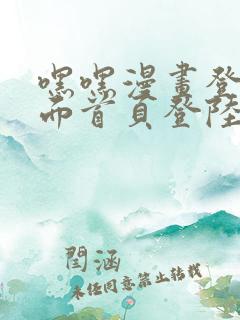 嘿嘿漫畫登
而首頁登陸
閆涵
未經同意禁止轉載